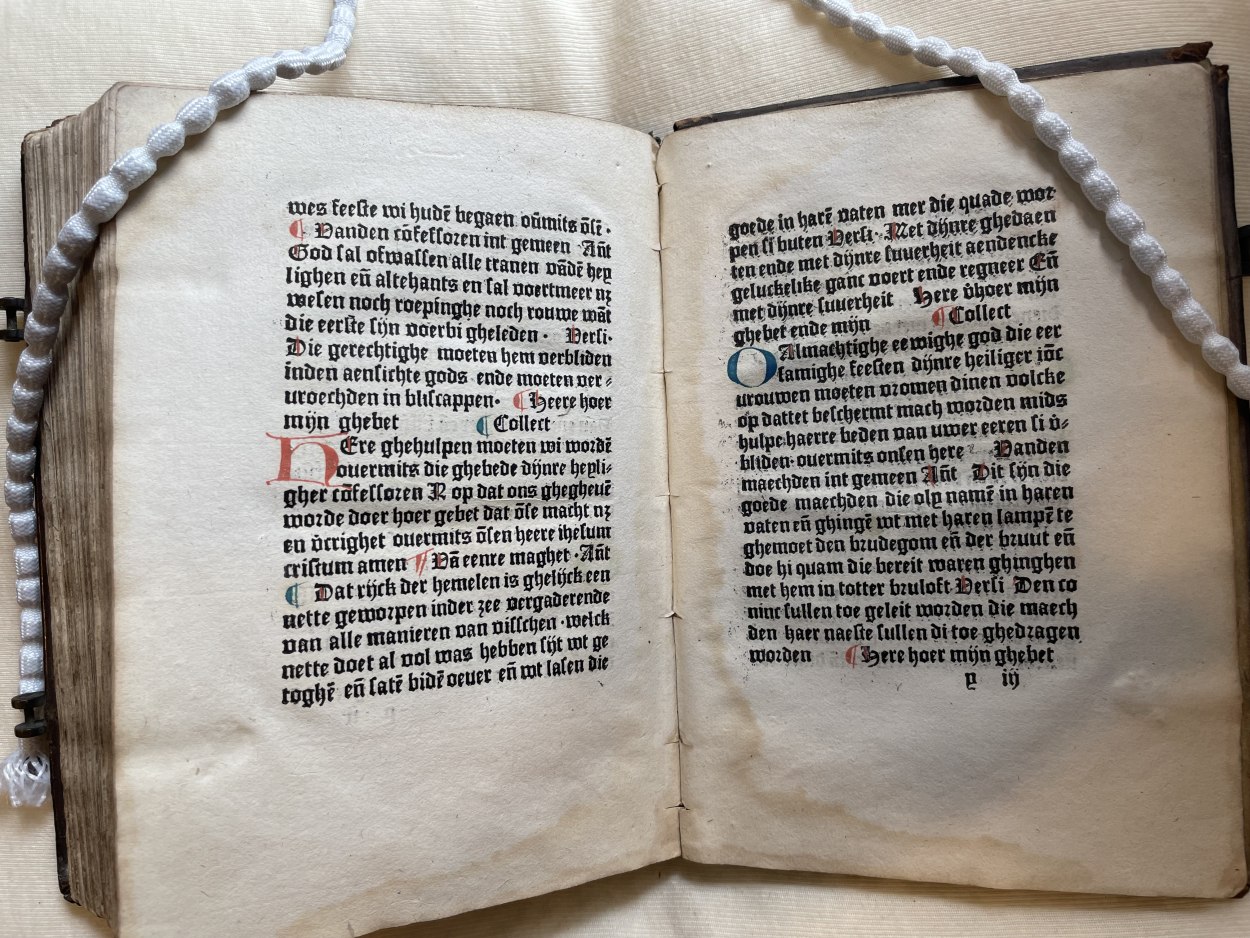 wes feeste wi hudē begaen oūmits ōsē ·
¶ Vanden cōfessoren int gemeen · Añt
God sal ofwassen alle tranen vādē hey
lighen eñ altehants en sal voertmeer nz
wesen noch roepinghe noch rouwe wāt
die eerste sijn voerbi gheleden · Versi·
Die gerechtighe moeten hem verbliden
inden aensichte gods ende moeten ver⸗
vroechden in bliscappen· ¶ Heere hoer
mijn ghebet ¶ Collect
HEre ghehulpen moeten wi wordē
overmits die ghebede dijnre heyli⸗
gher cōfessoren N op dat ons ghegheuē
worde doer hoer gebet dat ōse macht nz
en v̄crighet overmits ōsen heere ihesum
cristum amen ¶ Vā eenre maghet · Añt
¶ Dat rijck der hemelen is ghelijck een
nette geworpen inder zee vergaderende
van alle manieren van visschen · welck
nette doet al vol was hebben sijt wt ge
toghē eñ satē bidē oeuer eñ wt lasen die
goede in harē vaten mer die quade wor
pen si buten Versi· Met dijnre ghedaen
ten ende met dijnre suuerheit aendencke
geluckelike ganc voert ende regneer Eñ
met dijnre suuerheit Here v̄hoer mijn
ghebet ende mijn ¶ Collect
O Almachtighe eewighe god die eer
samighe feesten dijnre heiliger iōc
vrouwen moeten vromen dinen volcke
op dattet beschermt mach worden mids
hulpe haerre beden van uwer eeren si v̄⸗
bliden· overmits onsen here Vanden
maechden int gemeen Añt Dit sijn die
goede maechden die oly namē in haren
vaten eñ ghingē wt met haren lampē te
ghemoet den brudegom eñ der bruut eñ
doe hi quam die bereit waren ghinghen
met hem in totter bruloft Versi Den co
ninc sullen toe geleit worden die maech
den haer naeste sullen di toe ghedragen
worden ¶ Here hoer mijn ghebet
y iij